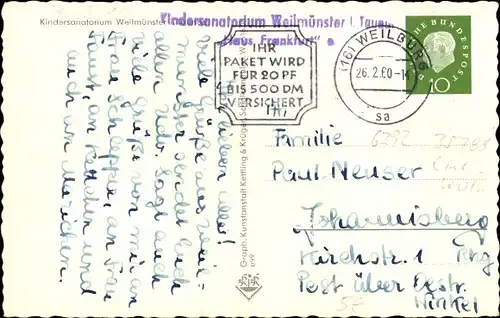 Kindersanatorium Weilmünster
Kindersanatorium Weilmünster i. Taunus
"Haus Frankfurt"
IHR
PAKET WIRD
FÜR 20 PF
BIS 500 DM
VERSICHERT
(16) WEILBURG
26.2.60-14
sa
DEUTSCHE BUNDESPOST
10
Ihr Lieben alle!
Viele Grüße aus Weil-
münster sendet Euch
allen Udo. Sagt auch
viele Grüße von mir an
Frau
an Frau
und
auch an Mariechen.
Graph. Kunstanstalt Kettling & Krüger, Schalksmühle
Familie
Paul Neuser
Johannisberg
Kirchstr. 1 Rhg
Post über Oestr.
Winkel